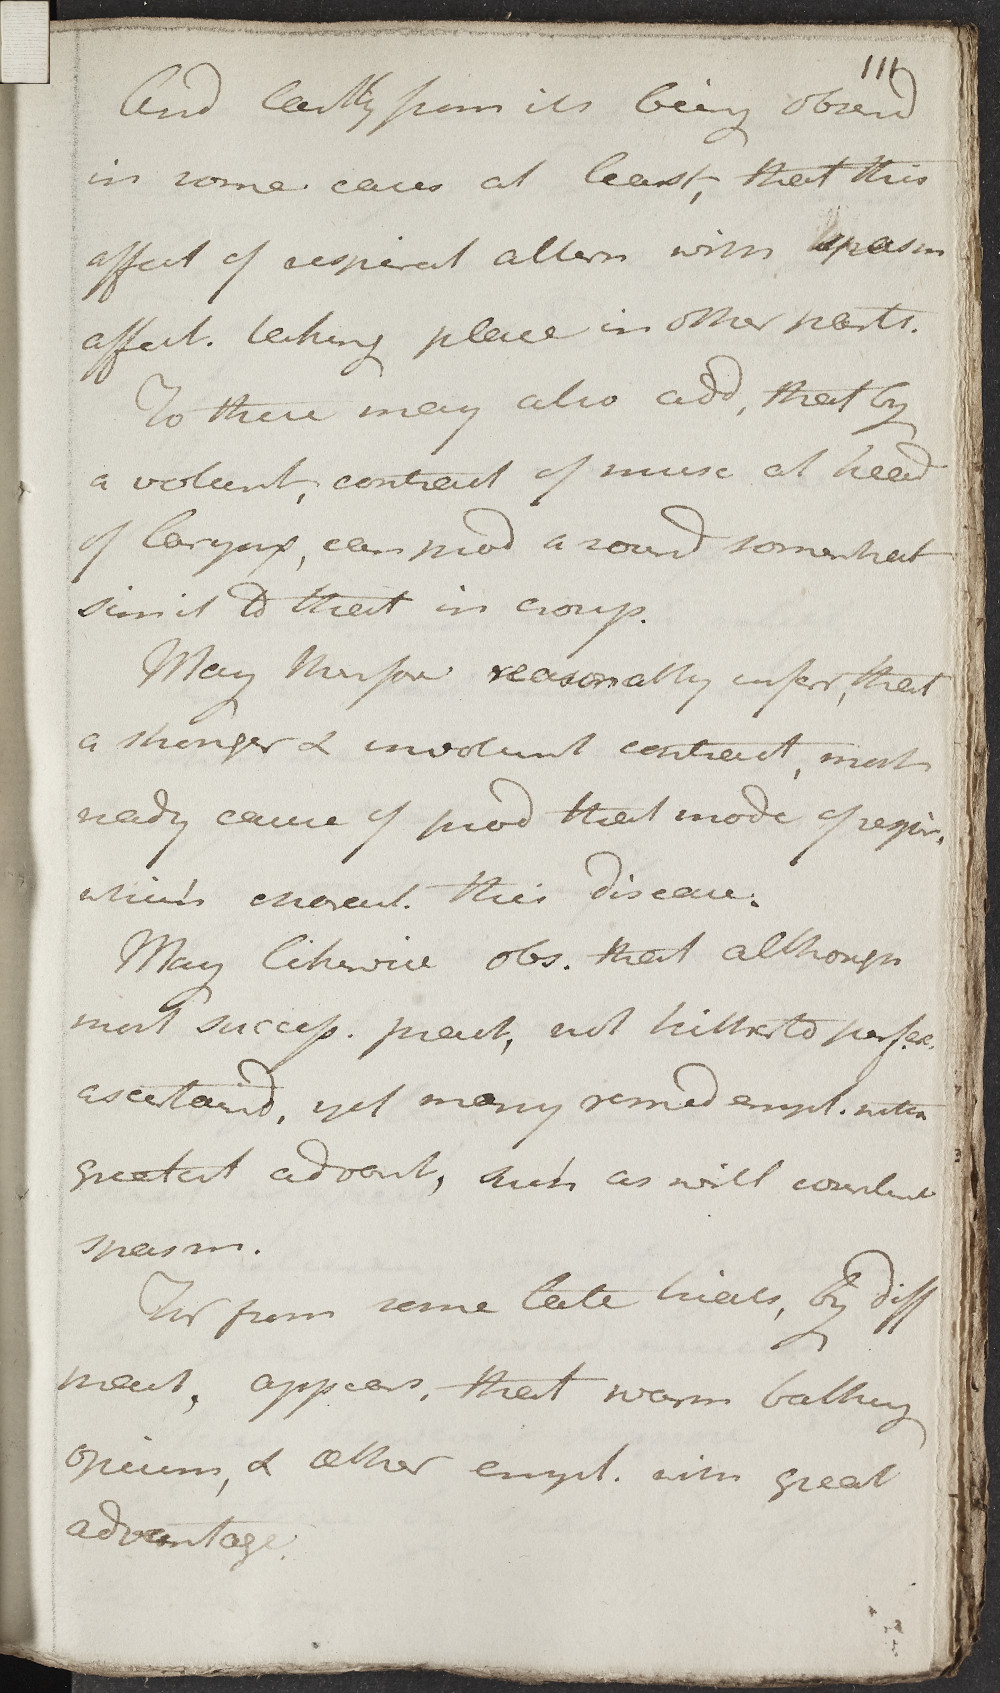 111
And lastly from its being observd
in some cases at least, that this
affect of respirat altern with spasm
affect. taking place in other parts.
To these may also add, that by
a volunt, contract of musc at head
of larynx, can prod a sound somewhat
simil to that in croup.
May therefore reasonably infer, that
a stronger & involunt contract, most
ready cause of prod that mode of respir,
which charact. this disease.
May likewise obs. that although
most success. pract, not hitherto perfec.
ascertaind, yet many remed empl. with
greatest advant, such as will counteract
spasm.
Thus from some late trials, by diff
pract, appears, that warm bathing
opium, & Æther empl. with great
advantage.